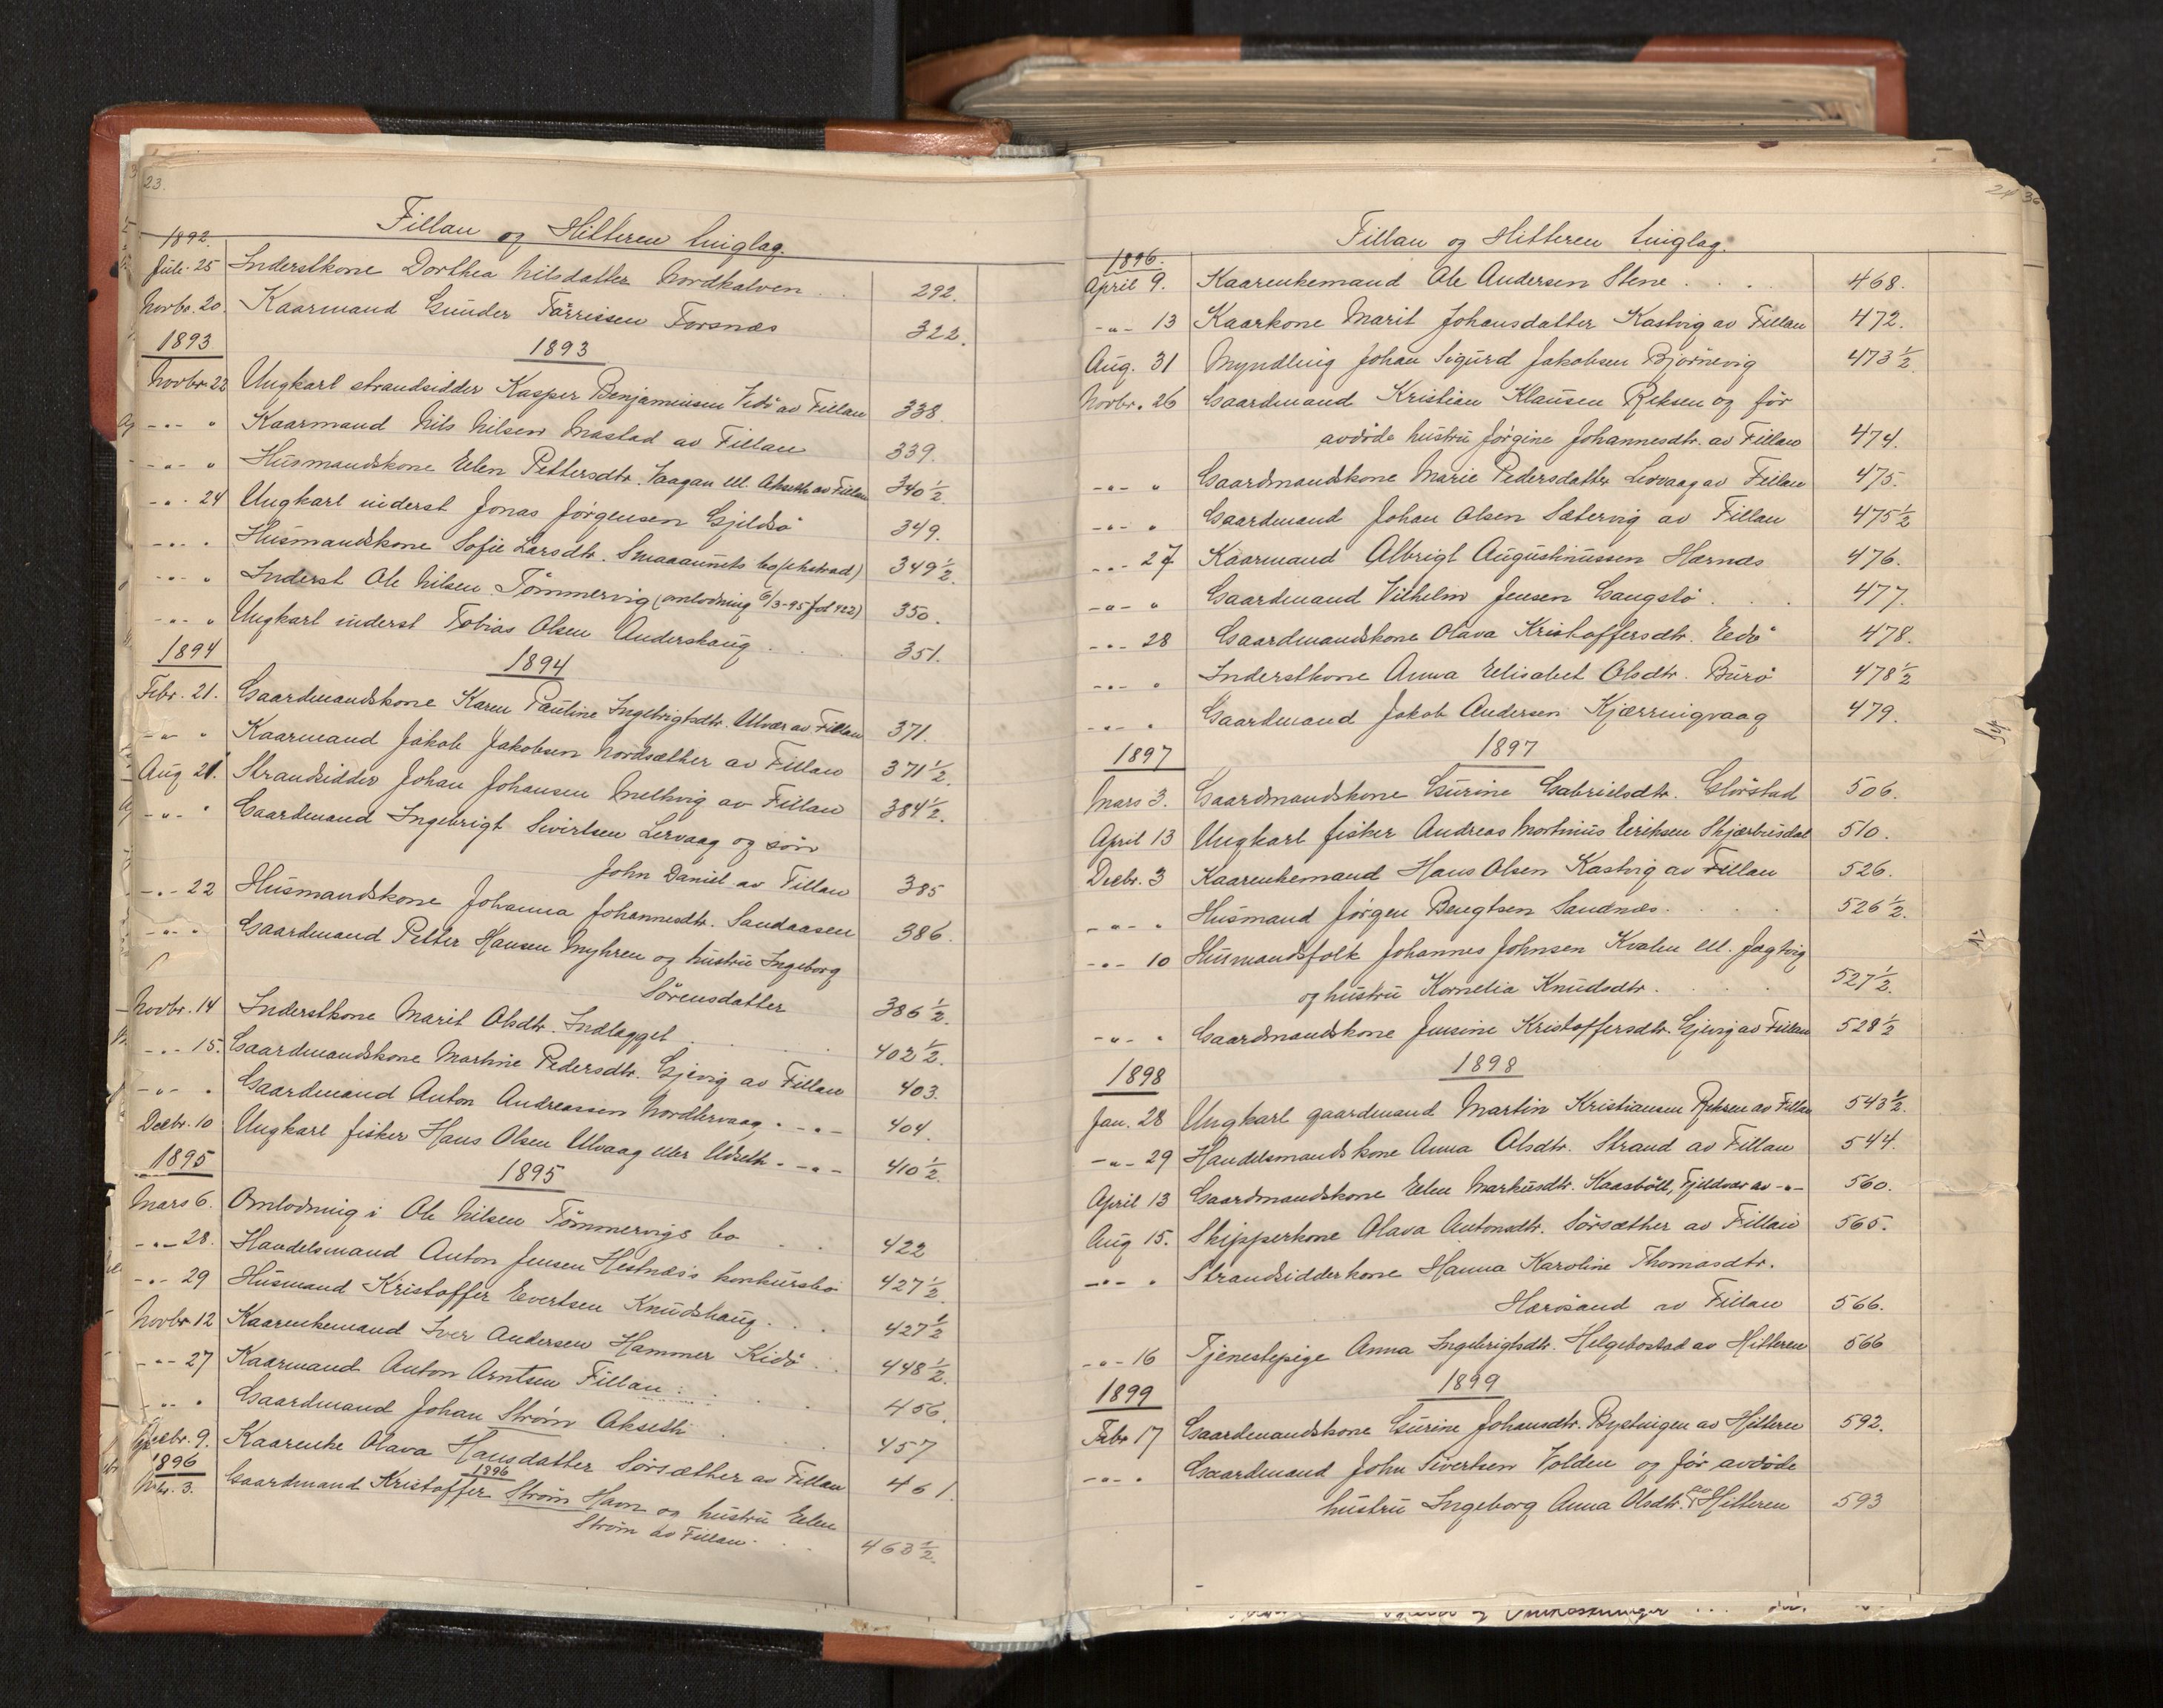 23.
Fillan og Hitteren tinglag.
1892.
Juli 25 Inderstkone Dorthea Nilsdatter Nordkalven . . 292.
Novbr. 20. Kaarmand Gunder Tørrissen Forsnæs 322.
1893 1893
Novbr. 22 Ungkarl strandsidder Kasper Benjaminsen Vedø av Fillan 338.
-"- " Kaarmand Nils Nilsen Mastad av Fillan 339.
-"- " Husmandskone Elen Pettersdtr. Vaagan ell. Akseth av Fillan 340 1/2
-"- 24 Ungkarl inderst Jonas Jørgensen Gjeldsø 349.
-"- " Husmandskone Sofie Larsdtr. Smaaaunets bo (ekstrad) 349 1/2.
-"- " Inderst Ole Nilsen Tømmervig (omlodning 6/3-95 fol 422) 350.
-"- " Ungkarl inderst Tobias Olsen Anderskaug . . . 351.
1894 1894
Febr. 21. Gaardmandskone Karen Pauline Ingebrigtsdtr. Ulvær av Fillan 371.
-"- " Kaarmand Jakob Jakobsen Nordsæther av Fillan 371 1/2.
Aug 21. Strandsidder Johan Johansen Melkvig av Fillan 384 1/2.
-"- " Gaardmand Ingebrigt Sivertsen Lervaag og søn
John Daniel av Fillan 385
-"- 22 Husmandskone Johanna Johannesdtr. Sandaasen 386.
-"- " Gaardmand Petter Hansen Myhren og hustru Ingeborg
Sørensdatter 386 1/2.
Novbr. 14 Inderstkone Marit Olsdtr. Indlægget . . . 402 1/2.
-"- 15. Gaardmandskone Martine Pedersdtr. Gjevig av Fillan 403.
-"- " Gaardmand Anton Andreassen Nordlervaag . -"- 404.
Decbr. 10 Ungkarl fisker Hans Olsen Ulvaag eller Udseth . -"- 410 1/2.
1895 1895
Mars 6. Omlodning i Ole Nilsen Tømmervigs bo . . . 422
-"- 28. Handelsmand Anton Jensen Hestnæs's konkursbo 427 1/2
-"- 29 Husmand Kristoffer Evertsen Knudshaug . . . 427 1/2
Novbr 12 Kaarenkemand Iver Andersen Hammer Kidø . . 448 1/2.
-"- 27 Kaarmand Anton Arntsen Fillan . . . 456.
-"- " Gaardmand Johan Strøm Akseth . . . 457
Decbr. 9. Kaarenke Olava Hansdatter Sørsæther av Fillan 461.
1896 1896
Febr. 3. Gaardmand Kristoffer Strøm Havn og hustru Elen
Strøm av Fillan . . . 463 1/2.
24 36
Fillan og Hitteren tinglag.
1896.
April 9. Kaarenkemand Ole Andersen Stene . . . . 468.
-"- 13 Kaarkone Marit Johansdatter Kastvig av Fillan 472.
Aug. 31 Myndling Johan Sigurd Jakobsen Bjørnevig 473 1/2
Novbr. 26 Gaardmand Kristian Klausen Reksen og før
avdøde hustru Jørgine Johannesdtr. av Fillan 474.
-"- " Gaardmandskone Marie Pedersdatter Lervaag av Fillan 475.
-"- " Gaardmand Johan Olsen Sætervig av Fillan 475 1/2
-"- 27 Kaarmand Albrigt Augustinussen Hærnæs 476.
-"- " Gaardmand Vilhelm Jensen Langstø . . . 477.
-"- 28 Gaardmandskone Olava Kristoffersdtr. Eedø 478.
-"- " Inderstkone Anna Elisabet Olsdtr. Burø 478 1/2
-"- " Gaardmand Jakob Andersen Kjærringvaag 479.
1897 1897
Mars 3. Gaardmandskone Gurine Gabrielsdtr. Glørstad 506.
April 13 Ungkarl fisker Andreas Mortinus Eeriksen Skjærbusdal 510.
Decbr. 3 Kaarenkemand Hans Olsen Kastvig av Fillan 526.
-"- " Husmand Jørgen Bengtsen Sandnæs . . . 526 1/2.
-"- 10 Husmandsfolk Johannes Johnsen Kvalen ell. Jagtvig
og hustru Kornelia Knudsdtr. . . . 527 1/2.
-"- " Gaardmandskone Jensine Kristoffersdtr. Gjevig av Fillan 528 1/2
1898 1898
Jan. 28 Ungkarl gaardmand Martin Kristiansen Reksen av Fillan 543 1/2.
-"- 29 Handelsmandskone Anna Olsdtr. Strand av Fillan 544.
April 13 Gaardmandskone Elen Markusdtr. Kaasbøll, Fjeldvær av -"- 560.
Aug 15. Skipperkone Olava Antonsdtr. Sørsæther av Fillan 565.
-"- " Strandsidderkone Hanna Karoline Thomasdtr.
Harøsand av Fillan 566.
-"- 16 Tjenestepige Anna Ingebrigtsdtr. Helgebostad av Hitteren 566
1899 1899
Febr 17 Gaardmandskone Gurine Johansdtr. Bystingen av Hitteren 592.
-"- " Gaardmand John Sivertsen Volden og før avdøde
hustru Ingeborg Anna Olsdtr. av Hitteren 593